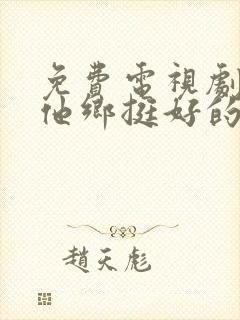 免費電視劇
他鄉挺好的
趙天彪